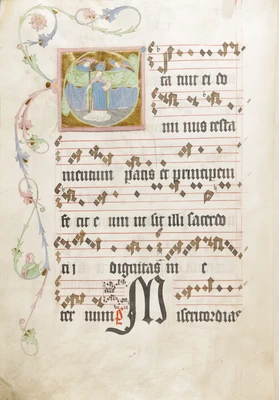 S ta tuit ei do
mi nus testa
mentum pacis et principem
fe cit e um ut sit illi sacerdo
ti j dignitas in e
ter num P Misericordias